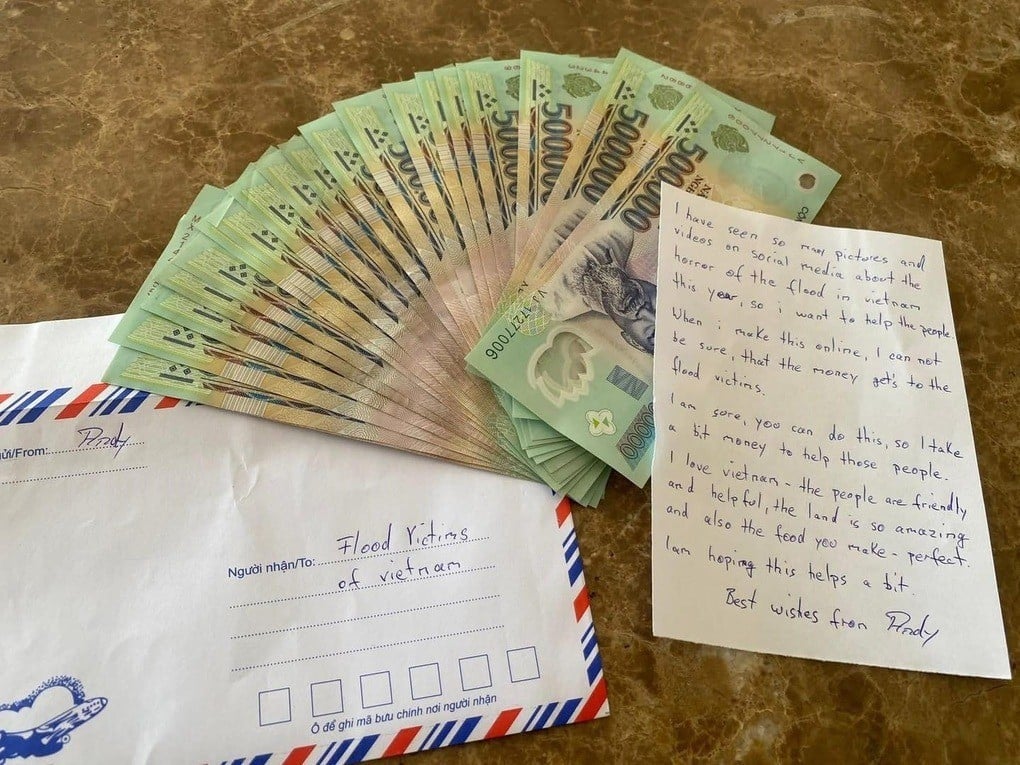 500000
500000
500000
500000
VA 17277006
I have seen so many pictures and
videos on social media about the
horror of the flood in vietnam
this year, so i want to help the people.
When i make this online, I can not
be sure, that the money get's to the
flood victims.
I am sure, you can do this, so I take
a bit money to help those people.
I love vietnam - the people are friendly
and helpful, the land is so amazing
and also the food you make - perfect.
I am hoping this helps a bit.
Best wishes from Andy
ửi/From: Andy
Người nhận/To: Flood Victims
of vietnam
Ô để ghi mã bưu chính nơi người nhận